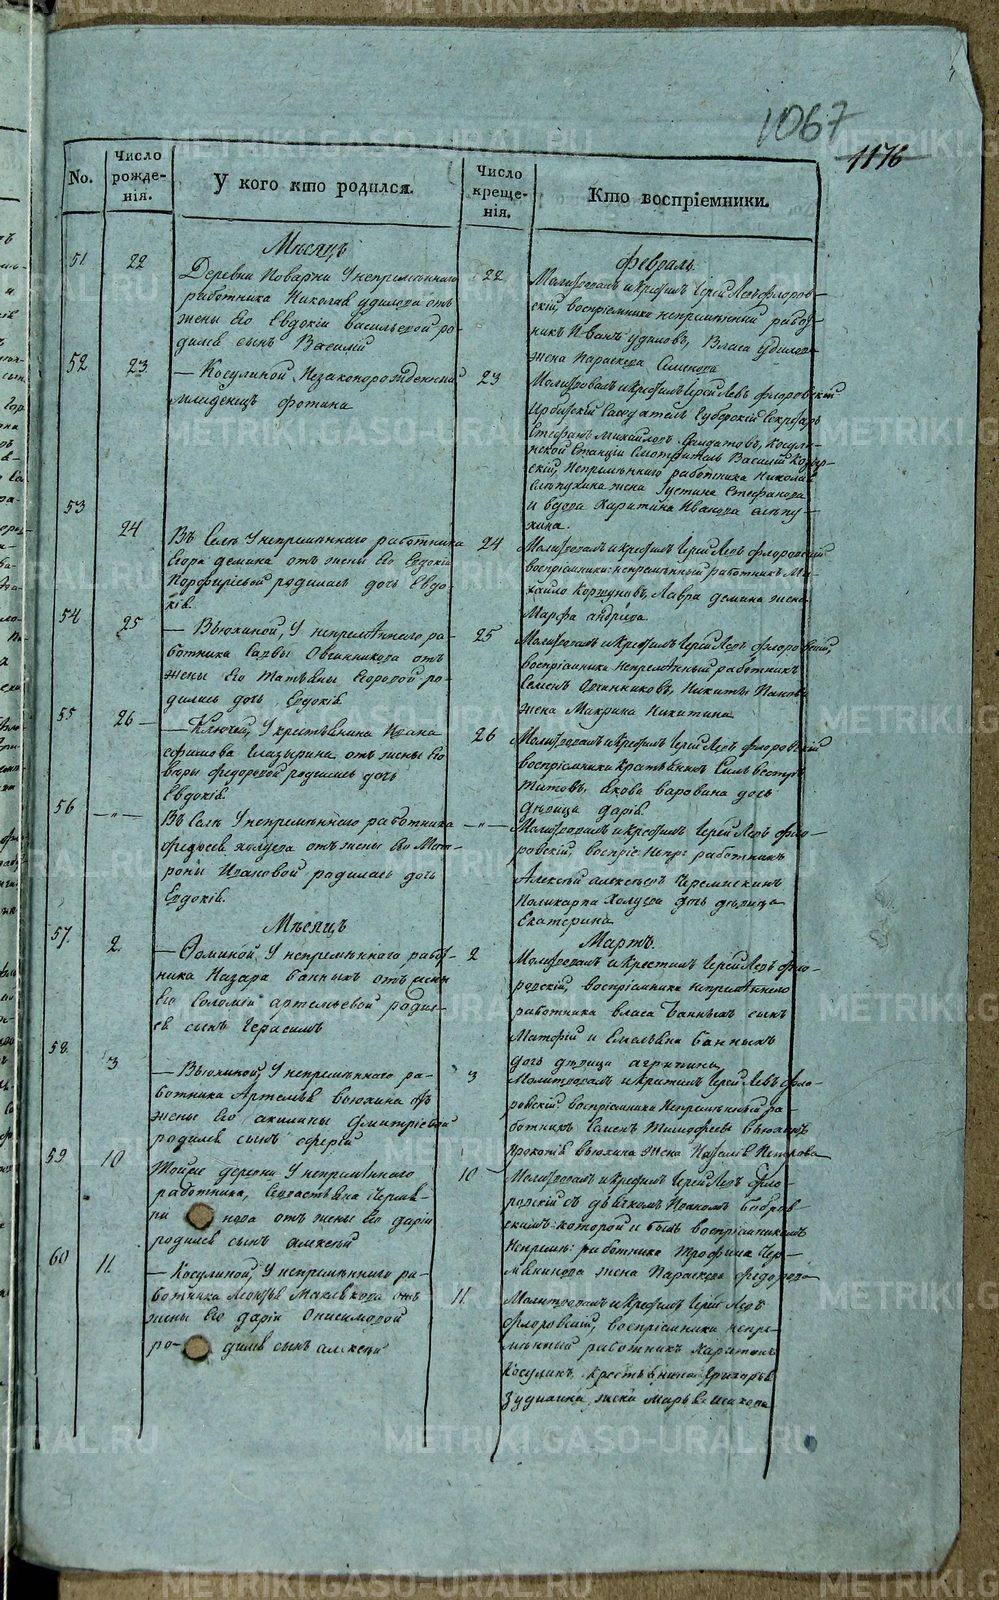 1067
1176
No.
Число рожде-нія.
У кого кто родился.
Число креще-нія.
Кто воспріемники.
Мѣсяцъ
Февраль.
51
22
Деревни Поварни У непремѣннаго
работника Николая Удилова отъ
жены Его Евдокіи Васильевой ро-
дился сынъ Василій
22
Молитвовалъ и крестилъ Іерей Левъ Флоров-
скій, воспріемники непремѣнный работ-
никъ Иванъ Удиловъ, Власа Удилова
жена Параскева Семенова
52
23
— Косулиной, Незаконорожденный
младенецъ Фотина
23
Молитвовалъ и крестилъ Іерей Левъ Флоровскій
Ирбитскій Заседатель Губернскій Секретарь
Стефанъ Михайловъ Солдатовъ, Косули-
нской Станціи Смотритель Василій
скій, Непремѣннаго работника Николая
жена Устина Стефанова
и вдова Харитина Иванова
53
24
Въ Селѣ У непремѣннаго работника
Егора Демина отъ жены Его Евдокіи
Порфирьевой родилась дочь Евдо-
кія.
24
Молитвовалъ и крестилъ Іерей Левъ Флоровскій
воспріемники: непремѣнный работникъ Ми-
хайло Коршуновъ, Лавра Демина жена
Марфа
54
25
— Вьюхиной, У непремѣннаго ра-
ботника Саввы Овчинникова отъ
жены Его Татьяны Егоровой ро-
дилась дочь Евдокія
25
Молитвовалъ и крестилъ Іерей Левъ Флоровскій,
воспріемники непремѣнный работникъ
Семенъ Овчинниковъ, Никиты Панова
жена Макрина Никитина
55
26 —
— Ключей, У крестьянина Ивана
Ефимова Глазырина отъ жены Его
Федоровой родилась дочь
Евдокія
26
Молитвовалъ и крестилъ Іерей Левъ Флоровскій
воспріемники крестьянинъ Сильвестръ
Титовъ, Якова Варовина дочь
дѣвица Дарія.
56
— „ —
Въ Селѣ У непремѣннаго работника
Федосея Холуева отъ жены Его Мат-
роны Ивановой родилась дочь
Евдокія.
— „ —
Молитвовалъ и крестилъ Іерей Левъ Фло-
ровскій, воспріе: непр: работникъ
Алексѣй Алексѣевъ
Поликарпа Холуева дочь дѣвица
Екатерина
Мѣсяцъ
Мартъ.
57.
2.
— Фоминой, У непремѣннаго работ-
ника Назара Банныхъ отъ жены
Его Соломіи Артемьевой родил-
ся сынъ Герасимъ
2
Молитвовалъ и Крестилъ Іерей Левъ Фло-
ровскій, воспріемники непремѣннаго
работника Власа Банныхъ сынъ
Матфій и Емельяна Банныхъ
дочь дѣвица Агрипина
58.
3
— Вьюхиной, У непремѣннаго ра-
ботника Артемья Вьюхина отъ
жены Его Акилины Дмитріевой
родился сынъ
3
Молитвовалъ и крестилъ Іерей Левъ Фло-
ровскій воспріемники Непремѣнный ра-
ботникъ Семенъ Тимофеевъ Вьюхинъ
Прокопія Вьюхина жена Наталія Петрова
59
10
Тойже деревни У непремѣннаго
работника, Севастьяна Черем-
нова отъ жены Его Даріи
родился сынъ Алексѣй
10
Молитвовалъ и крестилъ Іерей Левъ Фло-
ровскій съ дьячкомъ Иваномъ Бобров-
скимъ которой и былъ воспріемникомъ
Непремѣ: работника Трофима Чер-
жена Параскева Федорова
60
11.
— Косулиной, У непремѣннаго ра-
ботника отъ
жены Его Даріи Онисимовой
ро- дился сынъ Алексѣй
11.
Молитвовалъ и крестилъ Іерей Левъ
Флоровскій, воспріемники непре-
мѣнный работникъ Харитонъ
Косулинъ, крестьянина Григорья
жена Марья Исакова